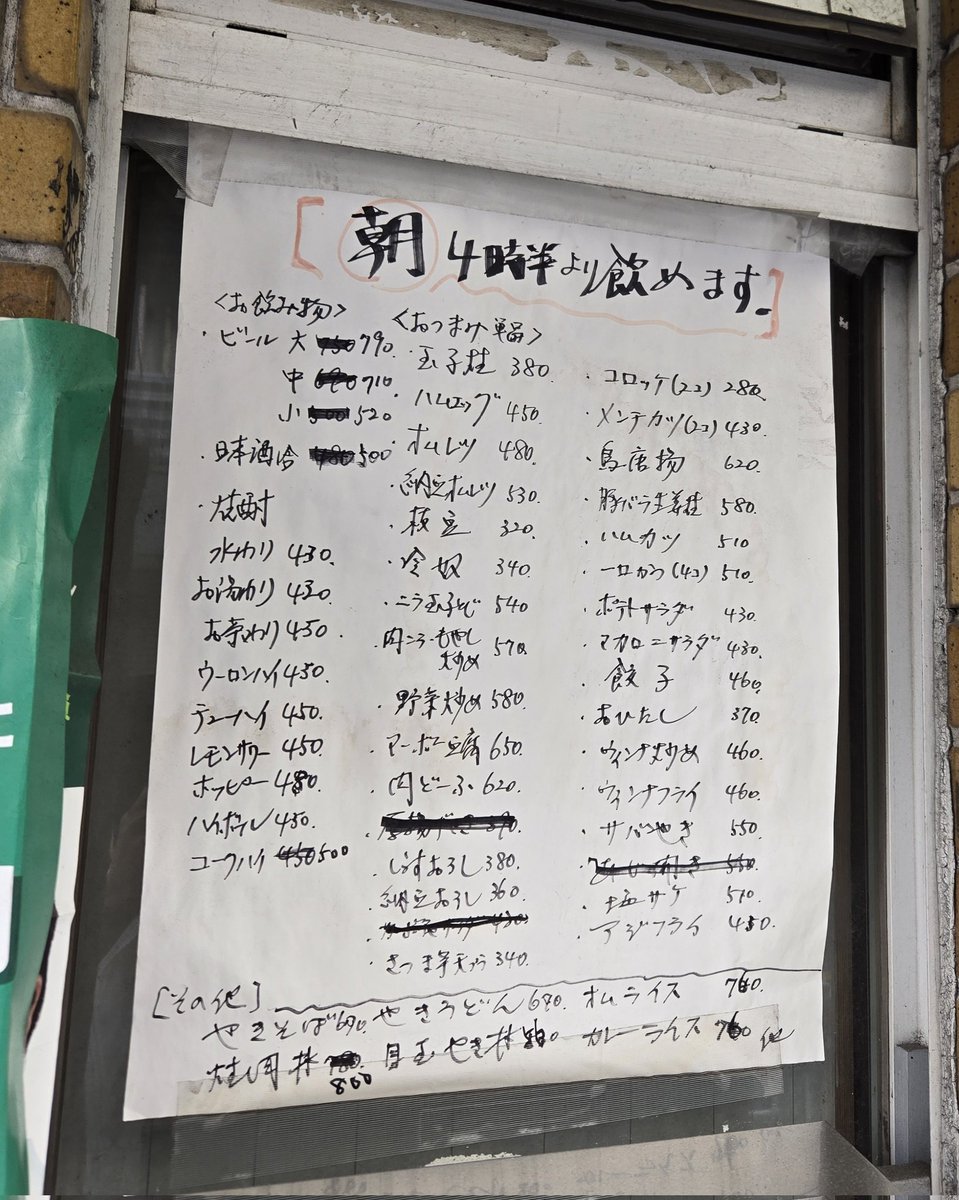 [朝 4時半より飲めます.]
<お飲み物>
・ビール 大 750 790.
中 680 710
小 500 520
・日本酒冷 480 500
・焼酎
水わり 430.
お湯わり 430
お茶わり 450
ウーロンハイ 450.
チューハイ 450.
レモンサワー 450
ホッピー 480
ハイボール 450.
コークハイ 450 500
<おつまみ単品>
・玉子焼 380.
・ハムエッグ 450
・オムレツ 480
・納豆オムレツ 530.
・枝豆 320.
・冷奴 340.
・ニラ玉子とじ 540
・肉ニラ・もやし炒め 570.
・野菜炒め 580.
・マーボー豆腐 650
・肉どーふ 620.
・しらすおろし 380
・納豆おろし 360
・さつま芋天ぷら 340.
・コロッケ(2コ) 280.
・メンチカツ(2コ) 430.
・鳥唐揚 620
・豚バラ生姜焼 580.
・ハムカツ 510
・一口かつ(4コ) 510.
・ポテトサラダ 430
・マカロニサラダ 430.
・餃子 460
・おひたし 370
・ウィンナ炒め 460.
・ウィンナフライ 460.
・サバやき 550
・塩サケ 510
・アジフライ 450.
[その他]
やきそば 690. やきうどん 690. オムライス 760.
焼肉丼 800 目玉やき丼 カレーライス 760 他